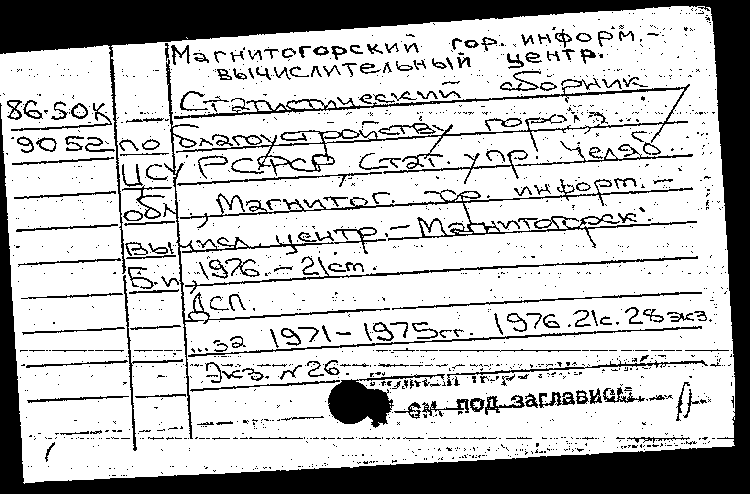 Магнитогорский гор. информ.-
вычислительный центр.
Статистический сборник
86.50К
9052 по благоустройству города...
ЦСУ РСФСР, Стат. упр. Челяб.
обл., Магнитог. гор. информ.-
вычисл. центр.-Магнитогорск:
Б.и., 1976.-21ст.
ДСП.
...за 1971-1975гг. 1976.21с.28экз.
Экз. №26.
Полный
см. под заглавием